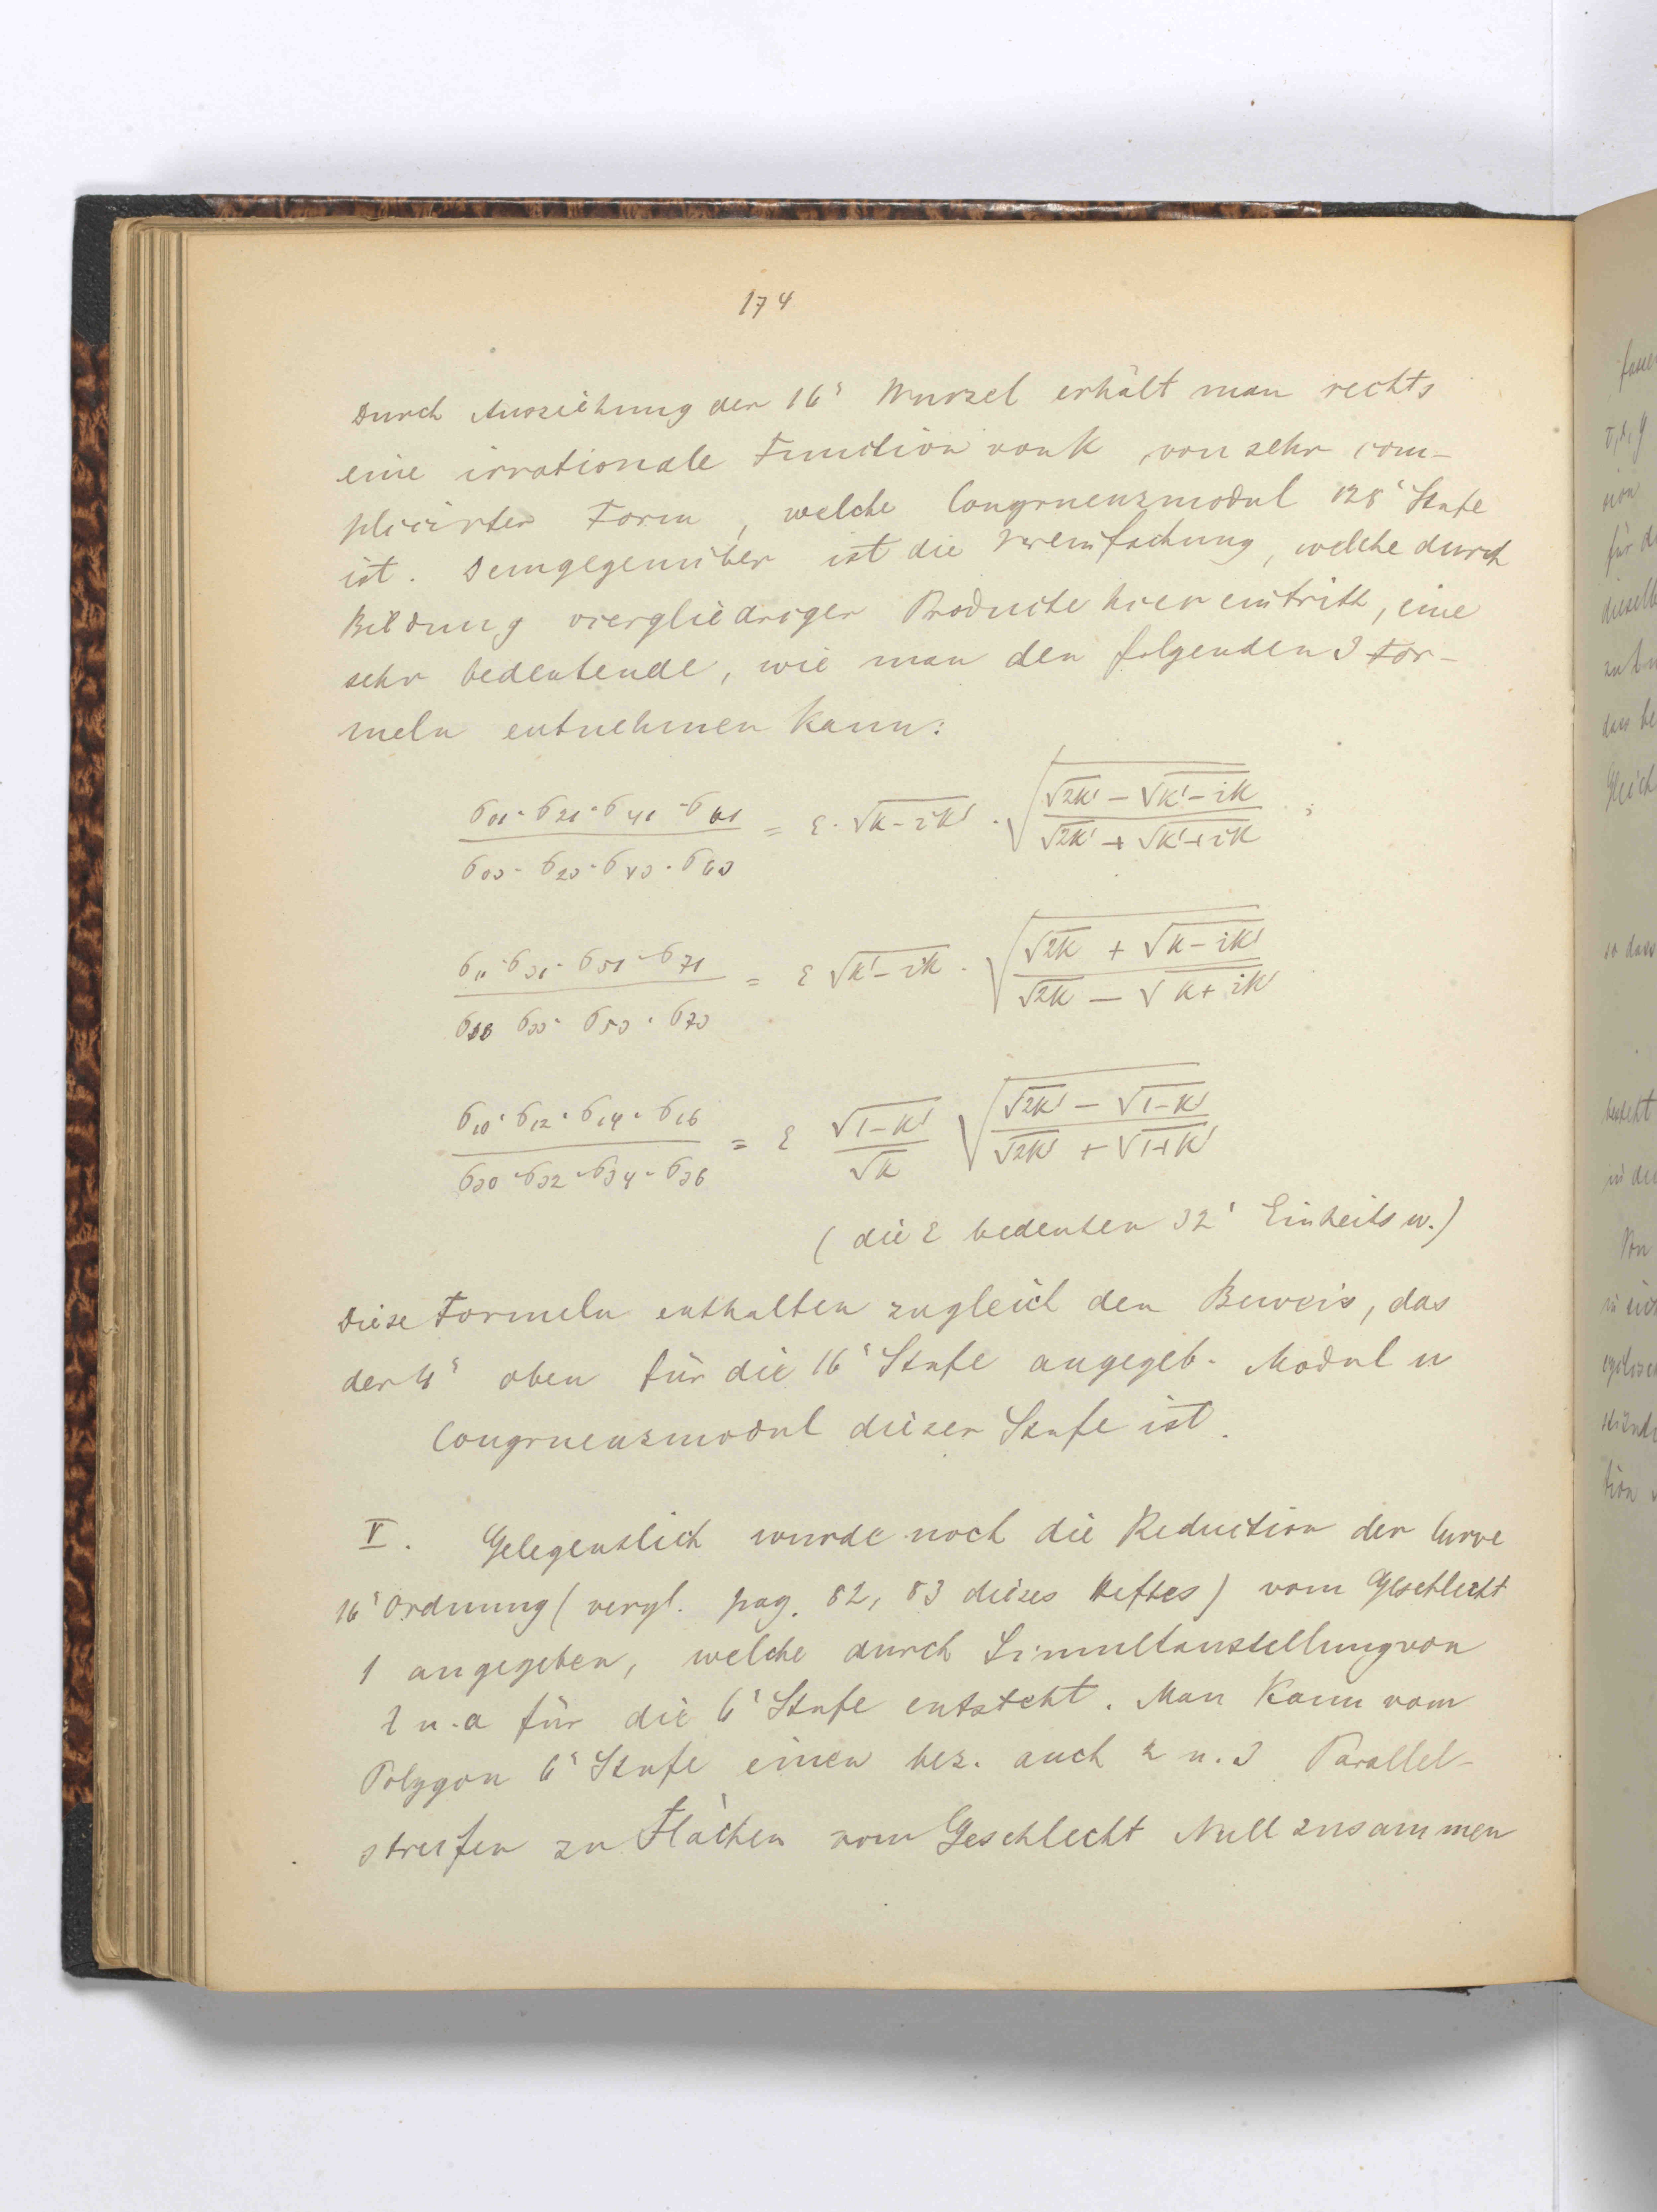 174
Durch Ausziehung der 16' Wurzel erhält man rechts
eine irrationale Function von k von sehr com-
plicirter Form, welche Congruenzmodul 128' Stufe
ist. Demgegenüber ist die Vereinfachung, welche durch
Bildung viergliedriger Producte hier eintritt, eine
sehr bedeutende, wie man den folgenden 3 For-
meln entnehmen kann:
σ01·σ21·σ41·σ61 / σ03·σ23·σ43·σ63 = ε·√(k-ik')·√((√2k' - √(k'-ik)) / (√2k' + √(k'+ik))) ;
σ11·σ31·σ51·σ71 / σ13 σ33·σ53·σ73 = ε √(k'-ik)·√((√2k + √(k-ik')) / (√2k - √(k+ik')))
σ10·σ12·σ14·σ16 / σ30·σ32·σ34·σ36 = ε √(1-k') / √k √((√2k' - √(1-k')) / (√2k' + √(1+k')))
(die ε bedeuten 32' Einheits w.)
Diese Formeln enthalten zugleich den Beweis, das
der 4' oben für die 16' Stufe angegeb. Modul n
Congruenzmodul dieser Stufe ist.
V. Gelegentlich wurde noch die Reduction der Curve
16' Ordnung (vergl. pag. 82, 83 dieses Heftes) vom Geschlecht
1 angegeben, welche durch Simultanstellung von
z u. a für die 6' Stufe entsteht. Man kann vom
Polygon 6' Stufe einen bez. auch 2 u. 3 Parallel-
streifen zu Flächen vom Geschlecht Null zusammen